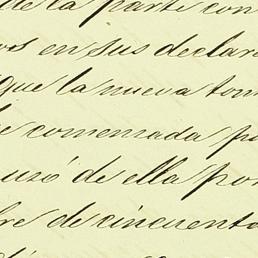 de la parte con
os en sus declara
que la nueva tom
comenzada po
uzó de ella por
re de cincuenta